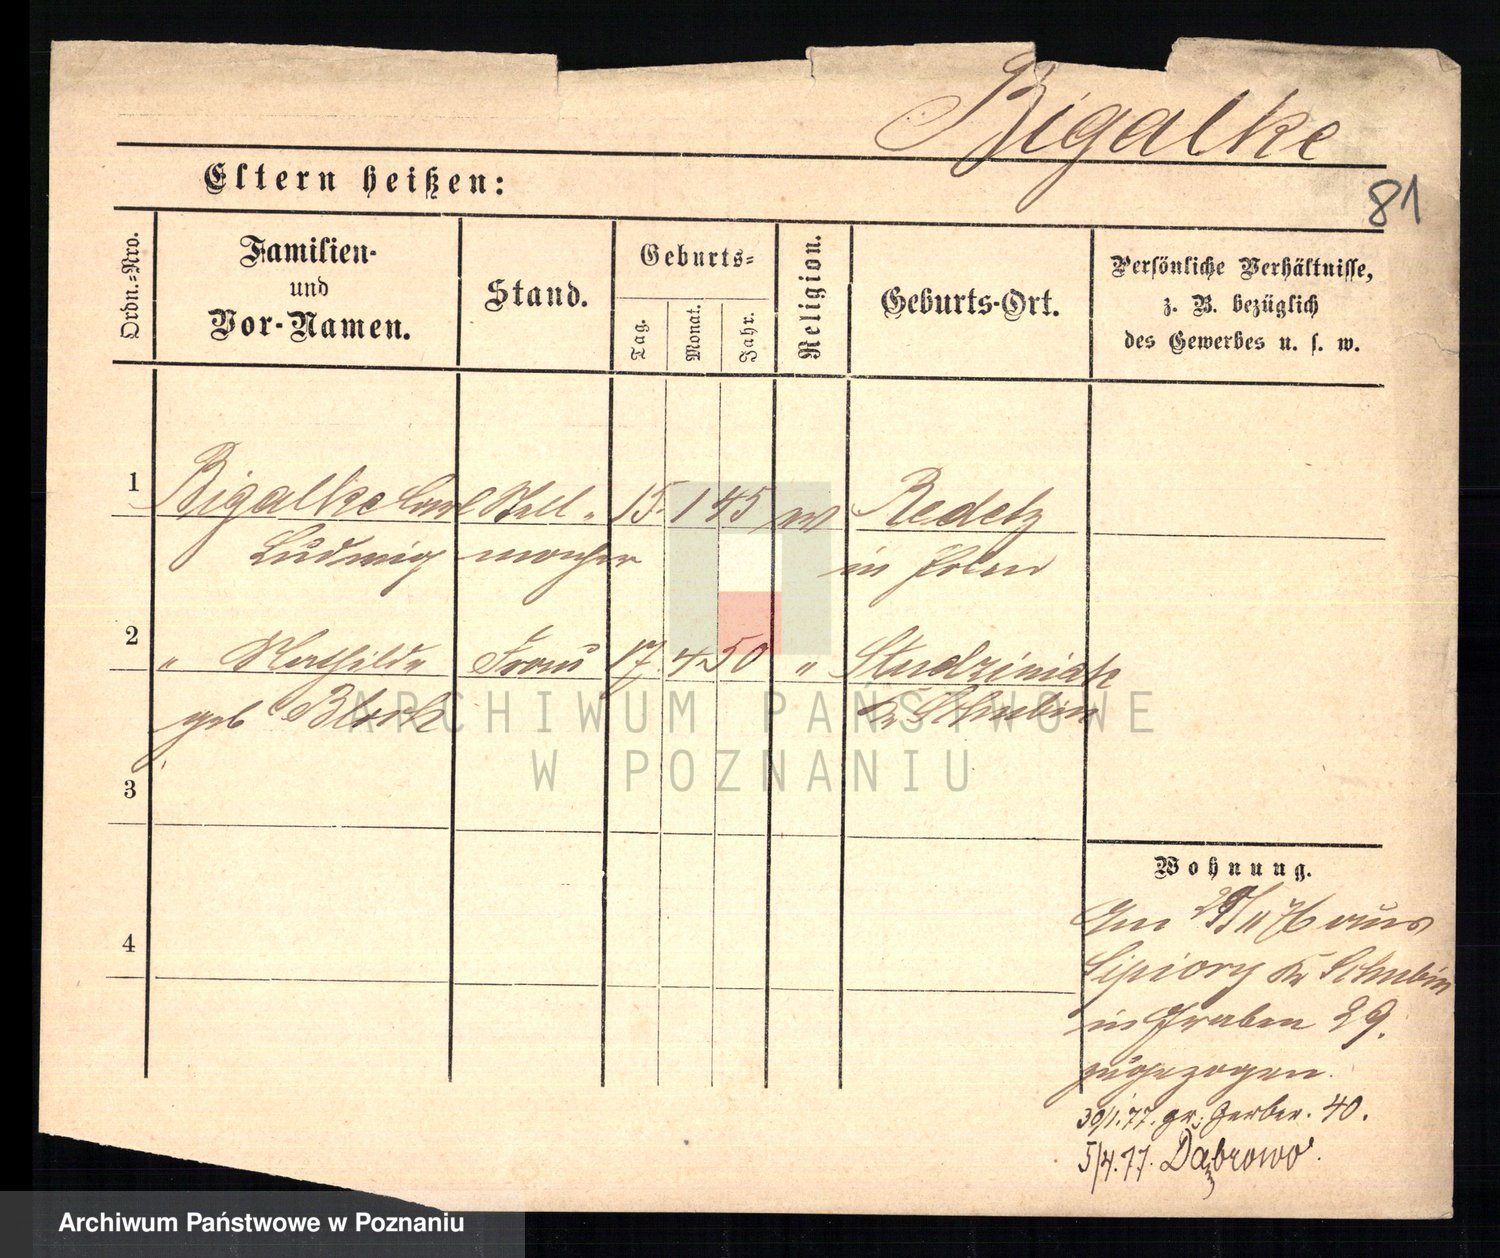 Bigalke
81
Eltern heißen:
Ordn.-Nro.
Familien-
und
Vor-Namen.
Stand.
Geburts-
Tag.
Monat.
Jahr.
Religion.
Geburts-Ort.
Persönliche Verhältnisse,
z. B. bezüglich
des Gewerbes u. s. w.
1 Bigalke Carl Stell- 15. 1 45 ev Redetz
Ludwig macher in Polen
2 " Mathilde Frau 17. 4 50 "
geb Block Kr Schubin
3
4
Wohnung.
Am 29/11 76 aus
Lipiory Kr Schubin
in Graben 29.
zugezogen.
30/1.77. gr. Gerber. 40.
5/4.77. Dąbrowo.
ARCHIWUM PAŃSTWOWE
W POZNANIU
Archiwum Państwowe w Poznaniu